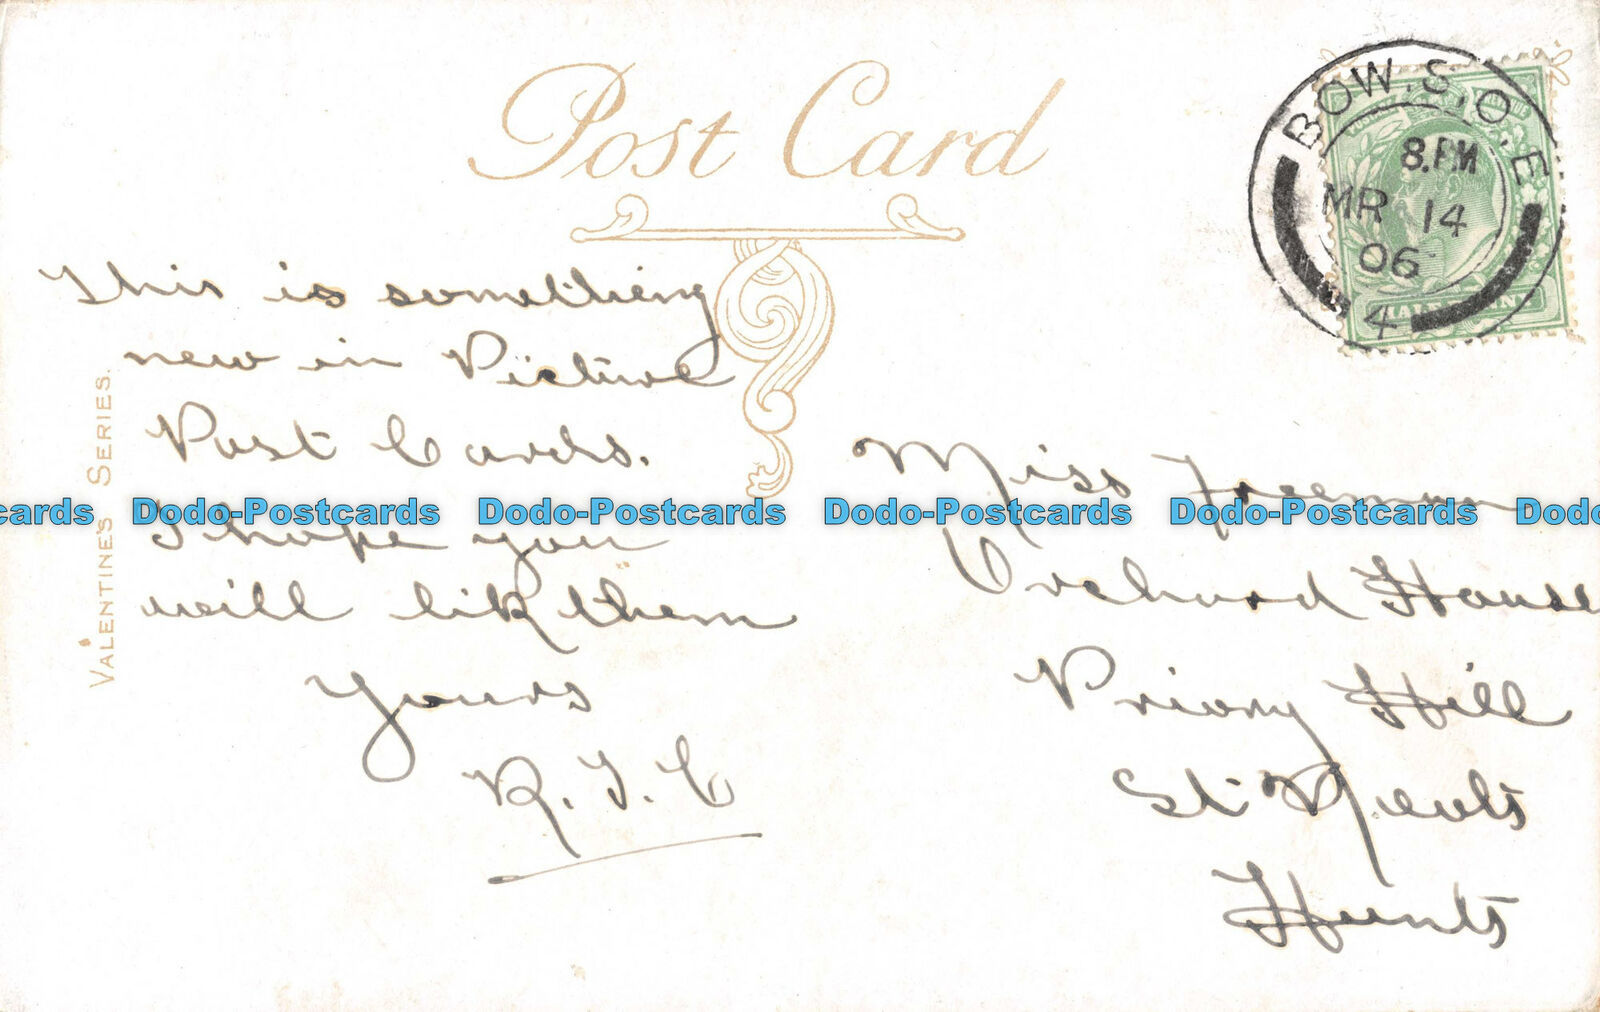 Post Card
BOW.S.O.E
8.PM
MR 14
06
4
HALFPENNY
VALENTINE'S SERIES.
This is something
new in Picture
Post Cards.
I hope you
will like them
Yours
R. J. C
Miss Freeman
Orchard House
Priory Hill
St Neots
Hunts
cards Dodo-Postcards Dodo-Postcards Dodo-Postcards Dodo-Postcards Dodo